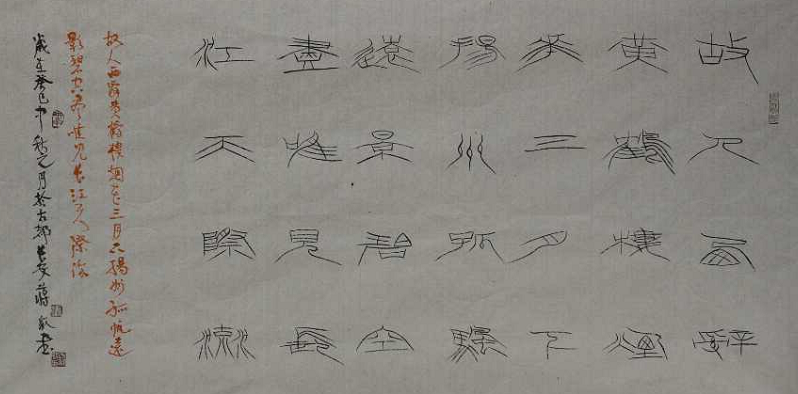 故人西辭
黃鶴樓煙
花三月下
揚州孤颿
遠景碧空
盡唯見長
江天際流
故人西辭黃鶴樓烟花三月下揚州孤帆遠
影碧空盡唯見長江天際流
歲在癸巳中秋之月於古都長安蔣